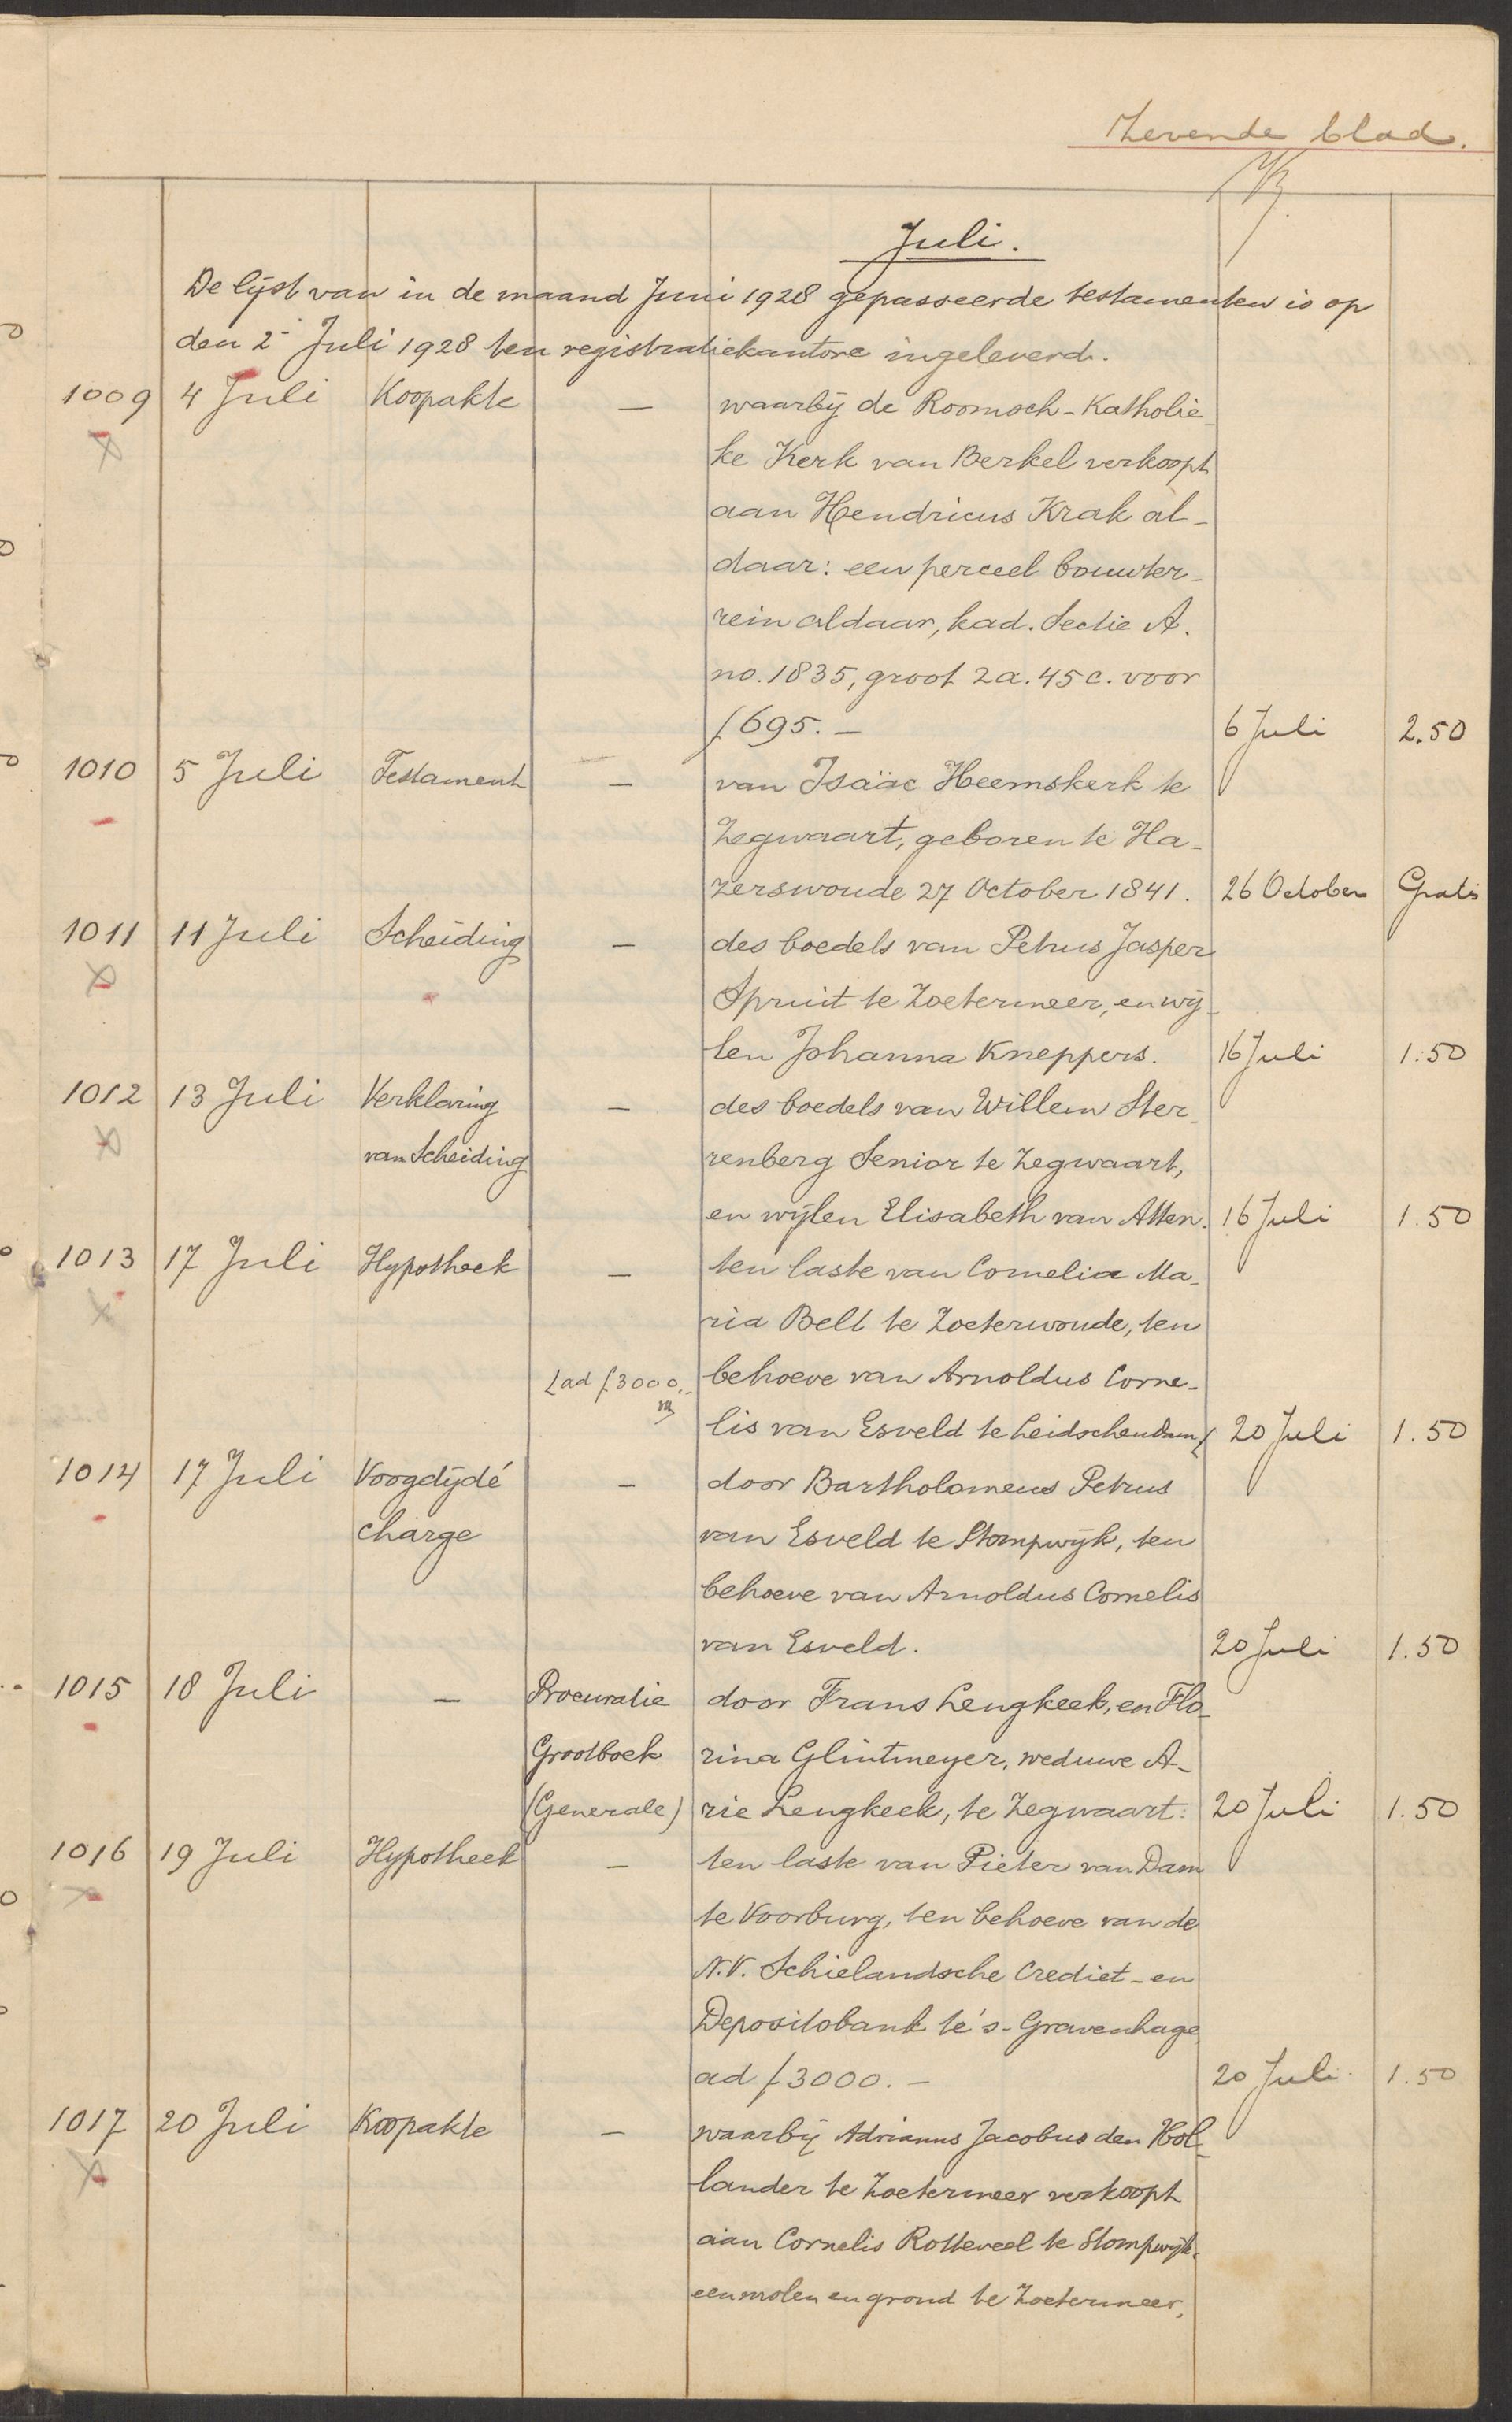 Zevende blad.
Juli.
De lijst van in de maand Juni 1928 gepasseerde testamenten is op
den 2 Juli 1928 ten registratiekantore ingeleverd.
1009 4 Juli Koopakte — waarbij de Roomsch-Katholie-
ke Kerk van Berkel verkoopt
aan Hendricus Krak al-
daar: een perceel bouwter-
rein aldaar, kad. Sectie A.
no. 1835, groot 2 a. 45 c. voor
ƒ 695.— 6 Juli 2.50
1010 5 Juli Testament — van Isaäc Heemskerk te
Zegwaart, geboren te Ha-
zerswoude 27 October 1841. 26 October Gratis
1011 11 Juli Scheiding — des boedels van Petrus Jasper
Spruit te Zoetermeer, en wij-
len Johanna Kneppers. 16 Juli 1.50
1012 13 Juli Verklaring — des boedels van Willem Ster-
van Scheiding renberg Senior te Zegwaart,
en wijlen Elisabeth van Atten. 16 Juli 1.50
1013 17 Juli Hypotheek — ten laste van Cornelia Ma-
ria Bell te Zoeterwoude, ten
ad ƒ 3000.- behoeve van Arnoldus Corne-
lis van Esveld te Leidschendam 20 Juli 1.50
1014 17 Juli Voogdijdé — door Bartholomeus Petrus
charge van Esveld te Stompwijk, ten
behoeve van Arnoldus Cornelis
van Esveld. 20 Juli 1.50
1015 18 Juli — Procuratie door Frans Lengkeek, en Flo-
Grootboek rina Glintmeyer, weduwe A-
(Generale) rie Lengkeek, te Zegwaart. 20 Juli 1.50
1016 19 Juli Hypotheek — ten laste van Pieter van Dam
te Voorburg, ten behoeve van de
N.V. Schielandsche Crediet- en
Depositobank te 's-Gravenhage
ad ƒ 3000.— 20 Juli 1.50
1017 20 Juli Koopakte — waarbij Adrianus Jacobus den Hol-
lander te Zoetermeer verkoopt
aan Cornelis Rotteveel te Stompwijk
een molen en grond te Zoetermeer,